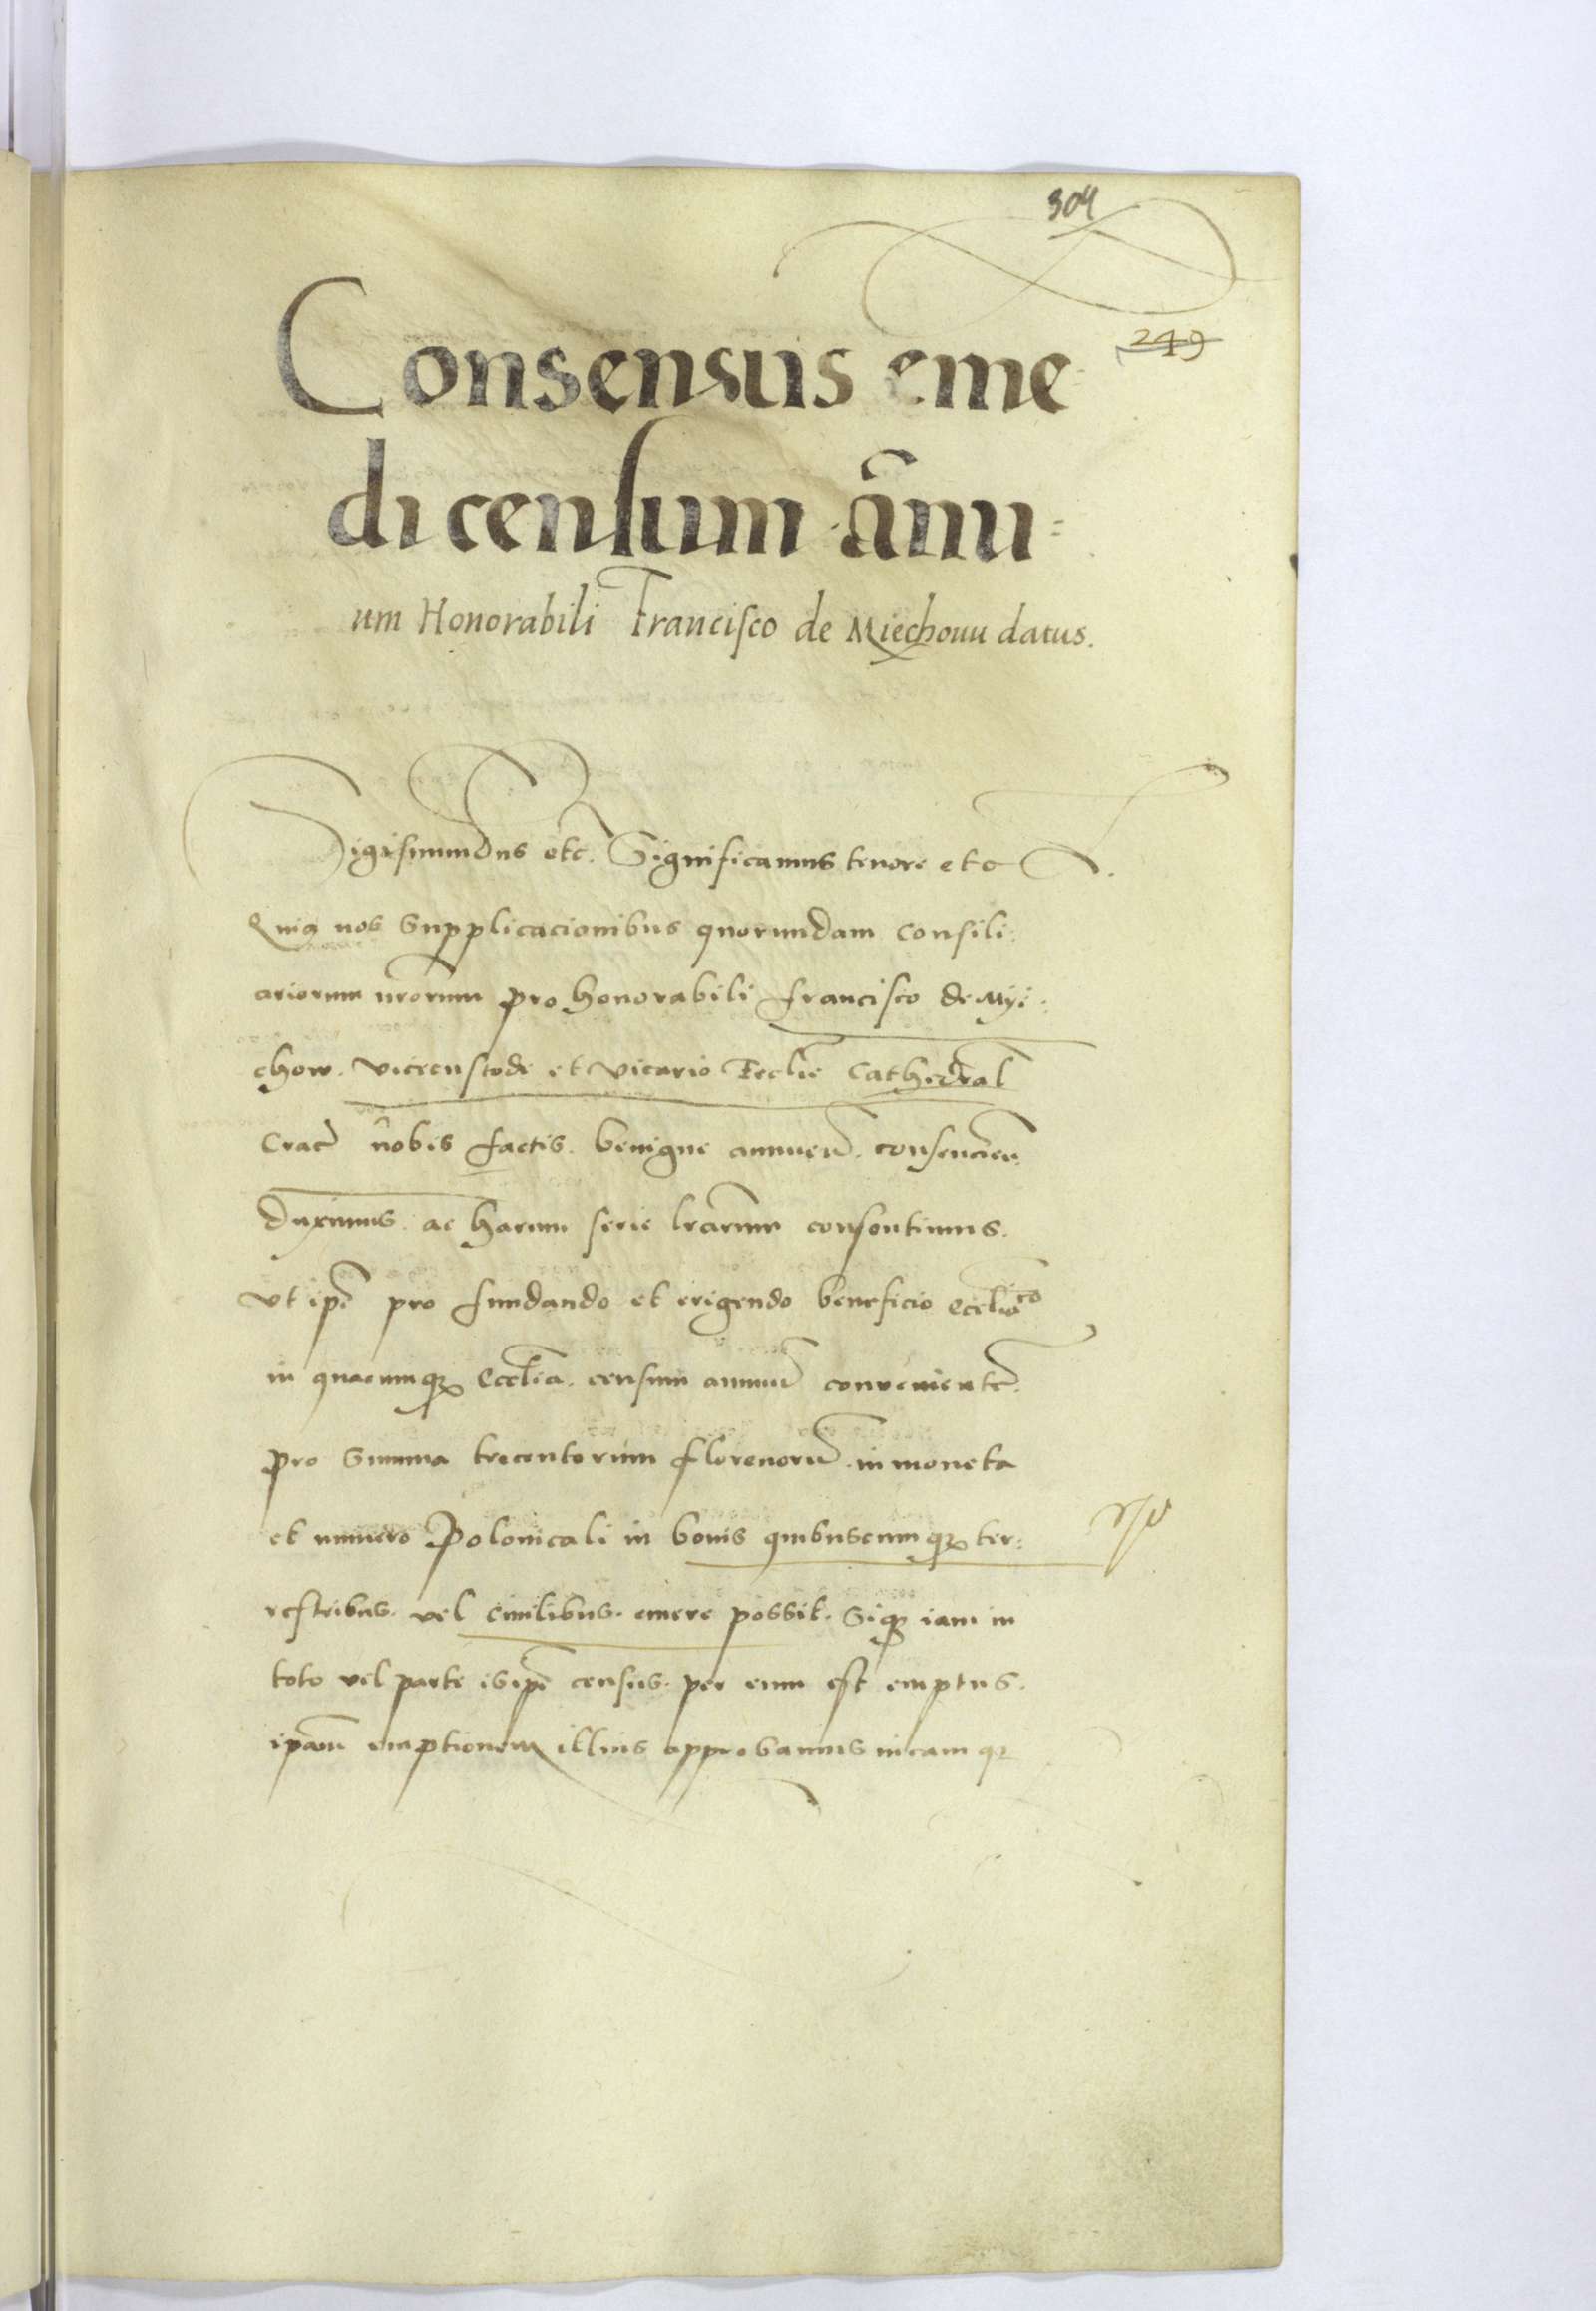 304
249
Consensus eme
di censum annu=
um Honorabili Francisco de Miechouu datus.
Sigismundus etc. Significamus tenore etc
Quia nos Supplicacionibus quorundam Consili
ariorum nrorum pro honorabili francisco de Myi
chow. vicecustode et vicario Ecclie Cathedral
Crac nobis factis. benigne annuen. consencien
duximus. ac harum serie lrarum consentimus.
Vt ipe pro fundando et erigendo beneficio ecclico
in quacumque Ecclia. censum annuu convenientem
pro Summa trecentorum florenoru. in moneta
et numero Polonicali in bonis quibuscumque ter=
restribus. vel Civilibus. emere possit. Sique iam in
toto vel parte is ipe census. per eum est emptus.
ipam emptionem illius approbamus in eamque